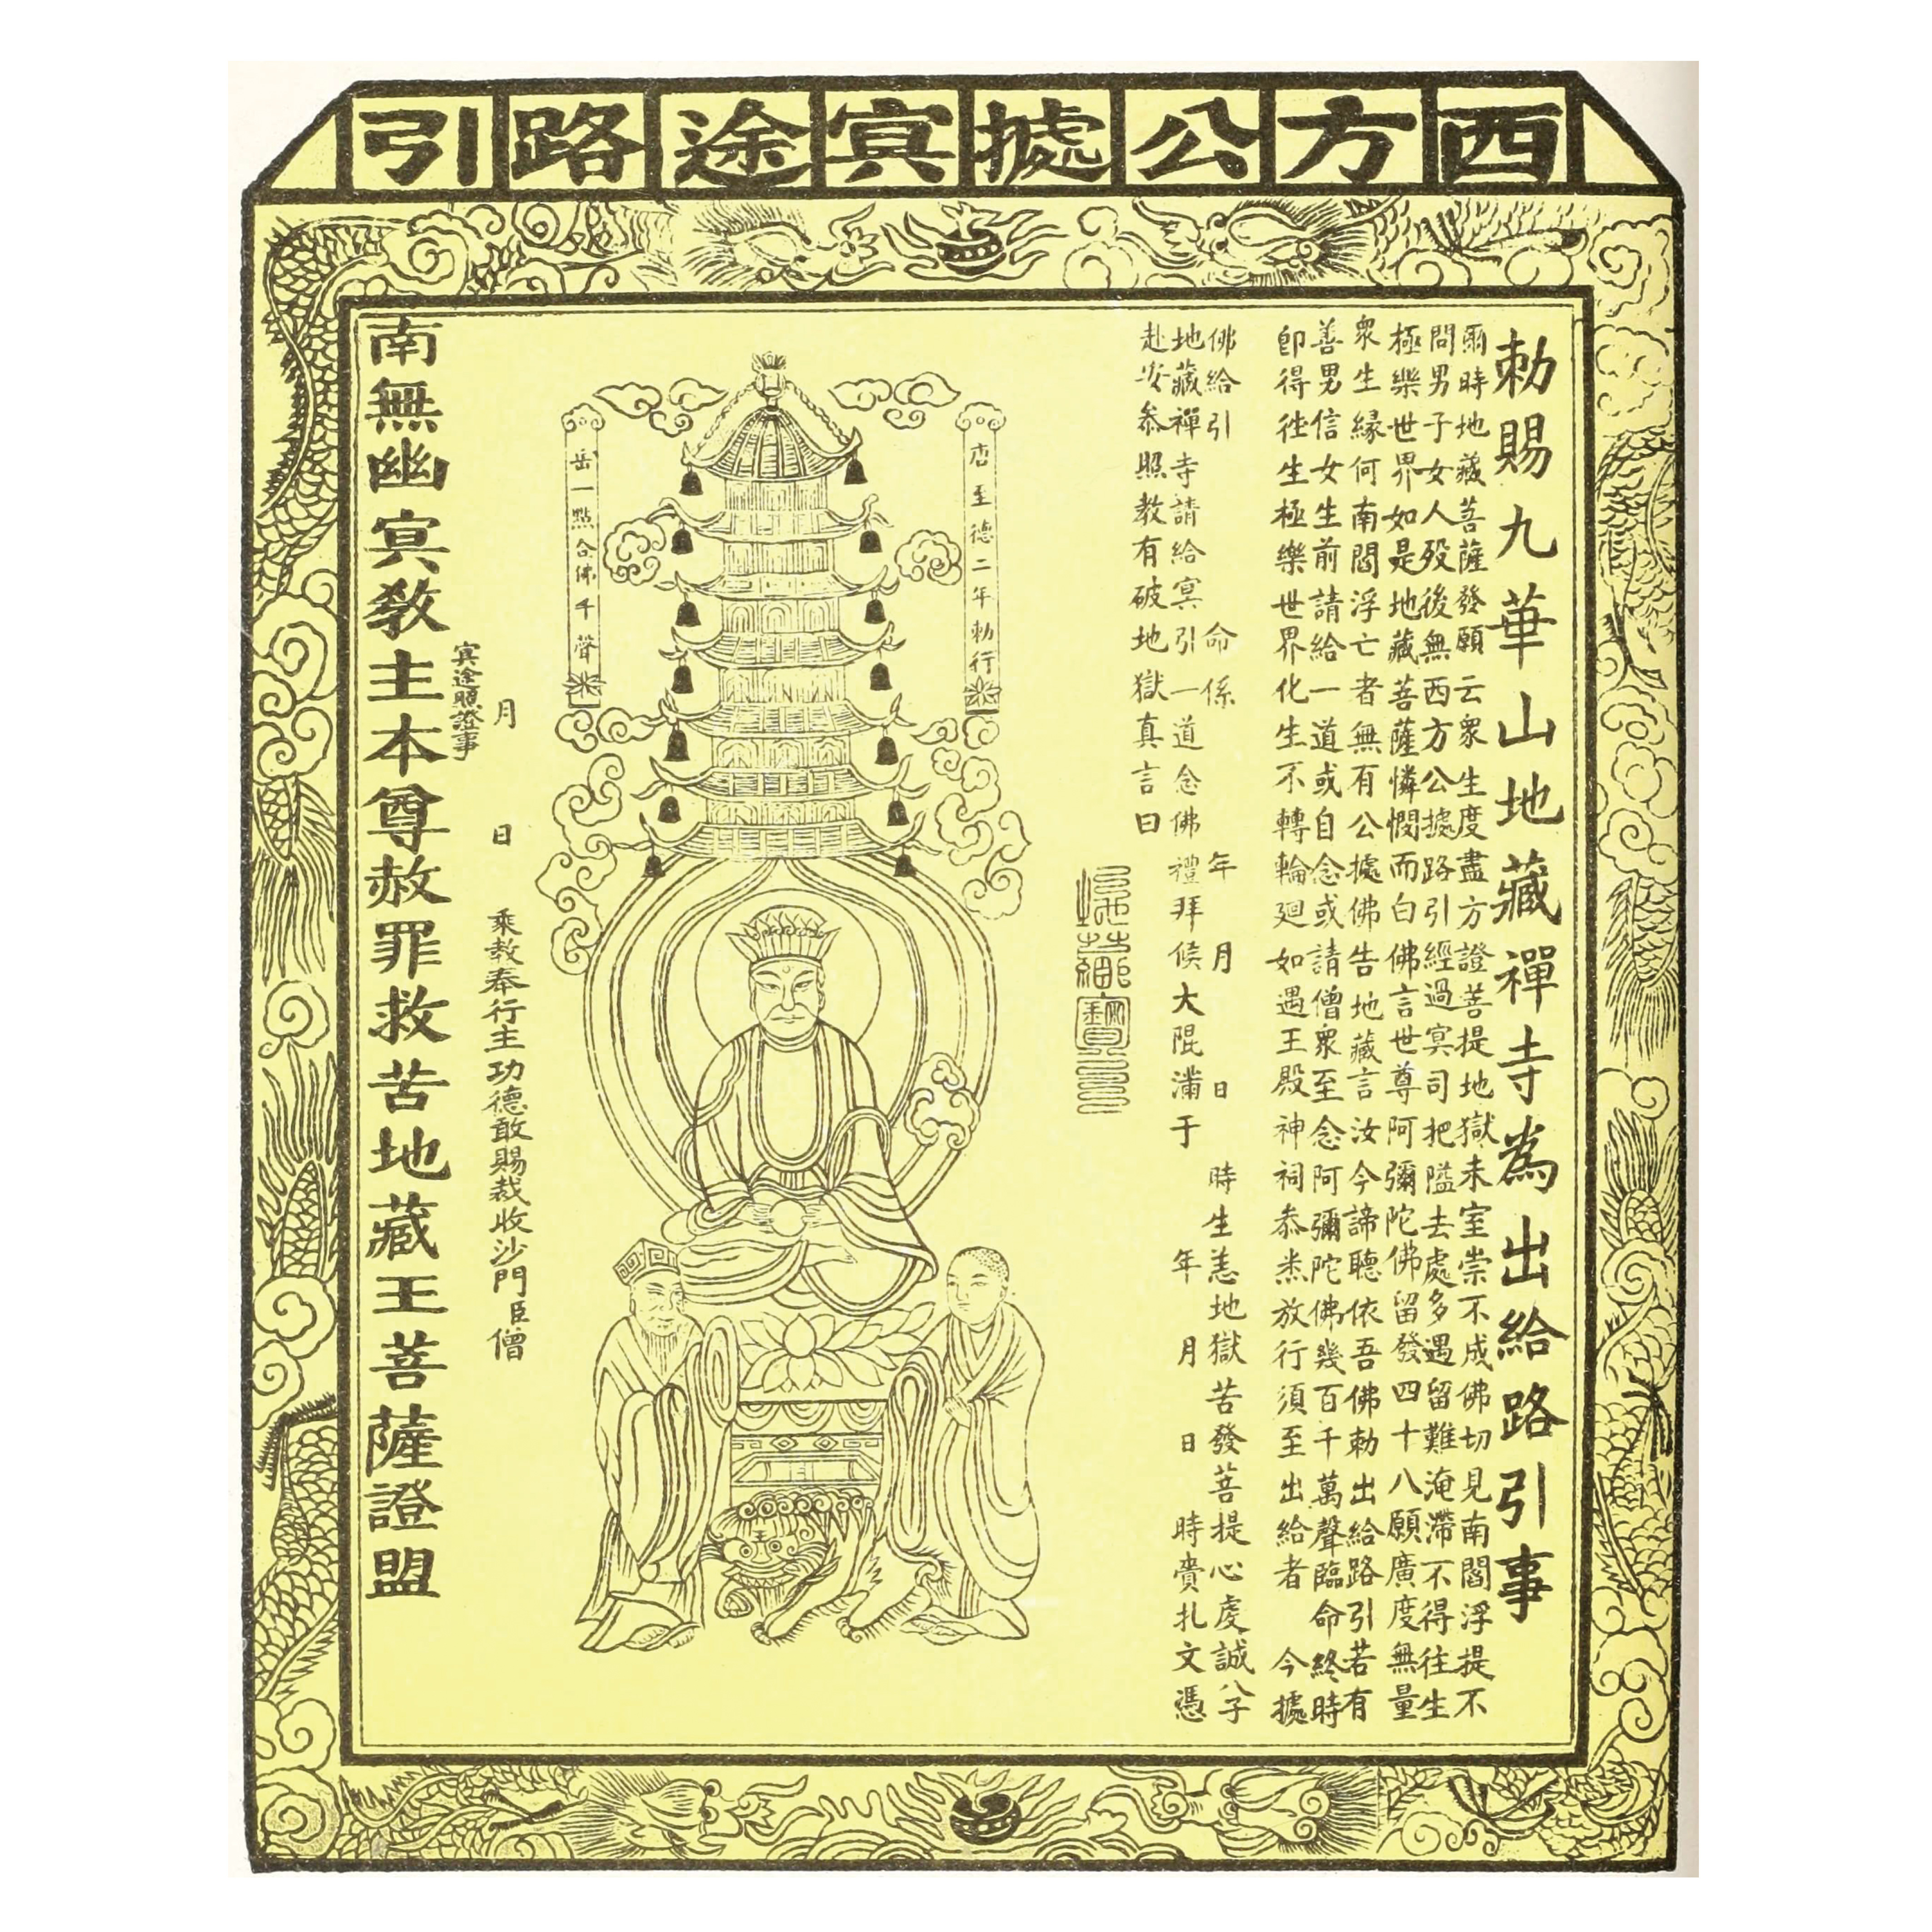 西方公據㝠途路引
勅賜九華山地藏禪寺為出給路引事
爾時地藏菩薩發願云衆生度盡方證菩提地獄未室崇不成佛切見南閻浮提不
問男子女人歿後無西方公據路引經過㝠司把隘去處多遇留難淹滯不得往生
極樂世界如是地藏菩薩憐憫而白佛言世尊阿彌陀佛留發四十八願廣度無量
衆生緣何南閻浮亡者無有公據佛告地藏言汝今諦聽依吾佛勅出給路引若有
善男信女生前請給一道或自念或請僧衆至念阿彌陀佛幾百千萬聲臨命終時
即得往生極樂世界化生不轉輪廻如遇王殿神祠叅悉放行須至出給者 今據
佛給引 命係 年 月 日 時生恙地獄苦發菩提心虔誠八子
地藏禪寺請給㝠引一道念佛禮拜候大限滿于 年 月 日 時賫扎文憑
赴安叅照教有破地獄真言曰
唐至德二年勅行
岳一點合佛千聲
月 日 乘教奉行主功德敢賜裁收沙門臣僧
㝠途照證事
南無幽㝠教主本尊赦罪救苦地藏王菩薩證盟